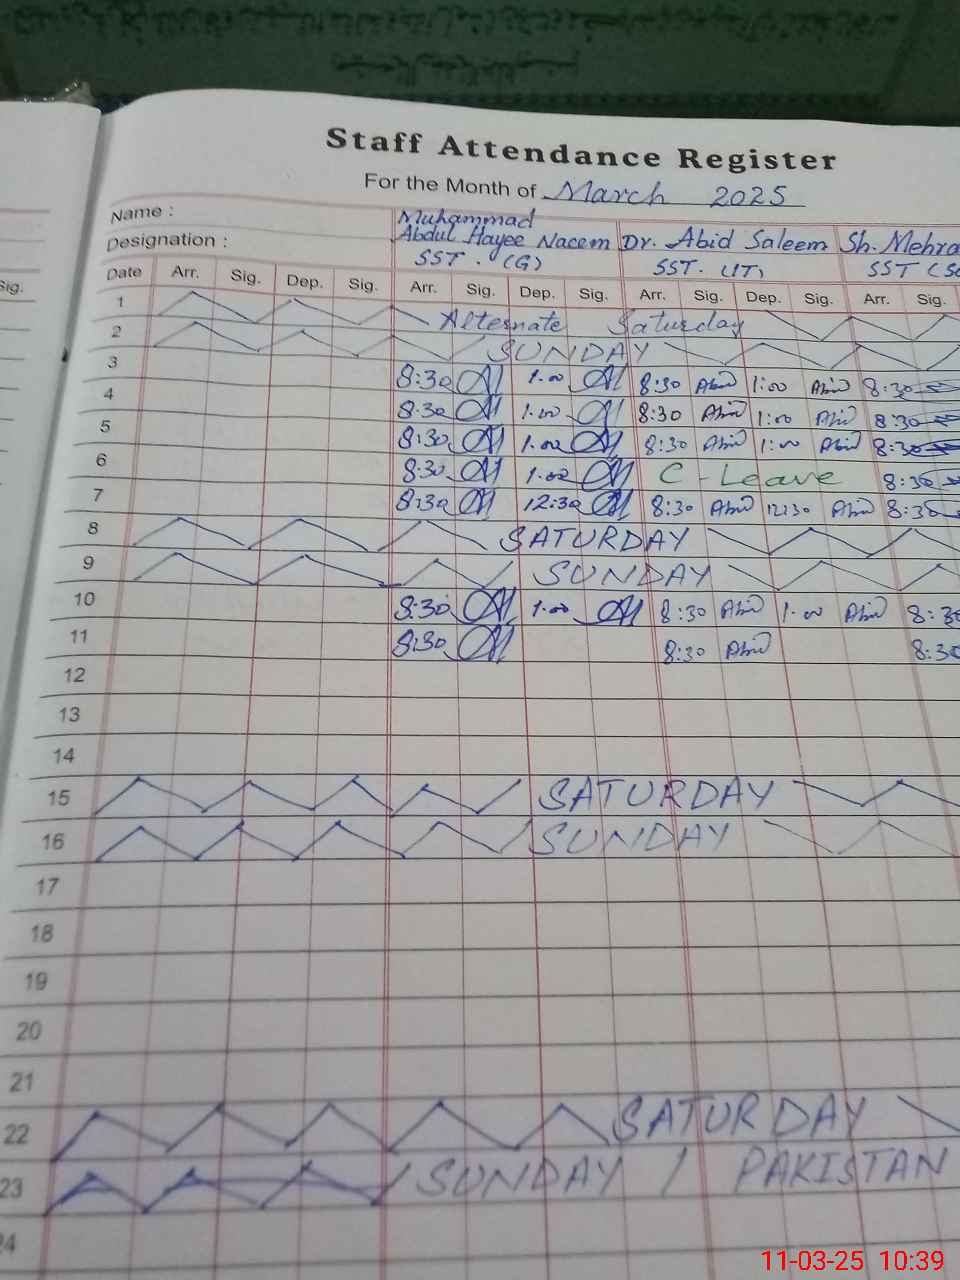 Staff Attendance Register
For the Month of March 2025
Name : Muhammad
Abdul Hayee Naeem Dr. Abid Saleem Sh. Mehra
Designation : SST. (G) SST. (IT) SST (Sc
sig.
Date Arr. Sig. Dep. Sig. Arr. Sig. Dep. Sig. Arr. Sig. Dep. Sig. Arr. Sig.
1 Alternate Saturday
2 SUNDAY
3 8:30 1.00 8:30 Abid 1:00 Abid 8:30
4 8:30 1.00 8:30 Abid 1:00 Abid 8:30
5 8:30 1.00 8:30 Abid 1:00 Abid 8:30
6 8:30 1.00 C - Leave 8:30
7 8:30 12:30 8:30 Abid 12:30 Abid 8:30
8 SATURDAY
9 SUNDAY
10 8:30 1.00 8:30 Abid 1:00 Abid 8:30
11 8:30 8:30 Abid 8:30
12
13
14
15 SATURDAY
16 SUNDAY
17
18
19
20
21
22 SATURDAY
23 SUNDAY / PAKISTAN
24
11-03-25 10:39